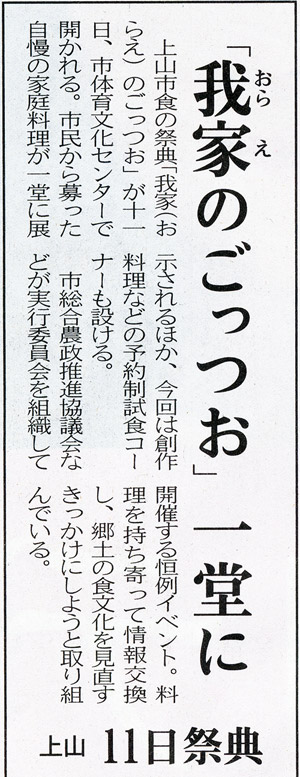 「我家のごっつお」一堂に
おらえ
上山市食の祭典「我家(お
らえ)のごっつお」が十一
日、市体育文化センターで
開かれる。市民から募った
自慢の家庭料理が一堂に展
示されるほか、今回は創作
料理などの予約制試食コー
ナーも設ける。
市総合農政推進協議会な
どが実行委員会を組織して
開催する恒例イベント。料
理を持ち寄って情報交換
し、郷土の食文化を見直す
きっかけにしようと取り組
んでいる。
上山 11日祭典